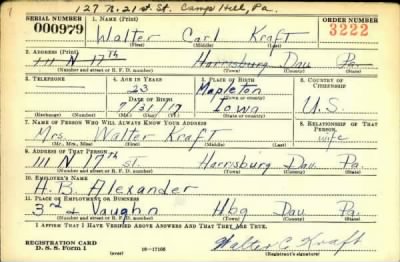 127 N. 21st St. Camp Hill, Pa.
SERIAL NUMBER 1. NAME (Print) ORDER NUMBER
000979 Walter Carl Kraft 3222
(First) (Middle) (Last)
2. ADDRESS (Print)
111 N 17th Harrisburg Dau Pa
(Number and street or R. F. D. number) (Town) (County) (State)
3. TELEPHONE 4. AGE IN YEARS 5. PLACE OF BIRTH 6. COUNTRY OF CITIZENSHIP
23 Mapleton
DATE OF BIRTH (Town or county)
7/31/17 Iowa U.S.
(Exchange) (Number) (Mo.) (Day) (Yr.) (State or country)
7. NAME OF PERSON WHO WILL ALWAYS KNOW YOUR ADDRESS 8. RELATIONSHIP OF THAT PERSON
Mrs. Walter Kraft wife
(Mr., Mrs., Miss) (First) (Middle) (Last)
9. ADDRESS OF THAT PERSON
111 N 17th st Harrisburg Dau Pa.
(Number and street or R. F. D. number) (Town) (County) (State)
10. EMPLOYER'S NAME
A. B. Alexander
11. PLACE OF EMPLOYMENT OR BUSINESS
3rd & Vaughn Hbg Dau Pa.
(Number and street or R. F. D. number) (Town) (County) (State)
I AFFIRM THAT I HAVE VERIFIED ABOVE ANSWERS AND THAT THEY ARE TRUE.
REGISTRATION CARD
D. S. S. Form 1 16—17105 Walter C. Kraft
(over) (Registrant's signature)